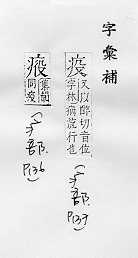 字彙補
疫
又以醉切音位
字林病流行也
(疒部 P137)
同疫
(疒部 P136)